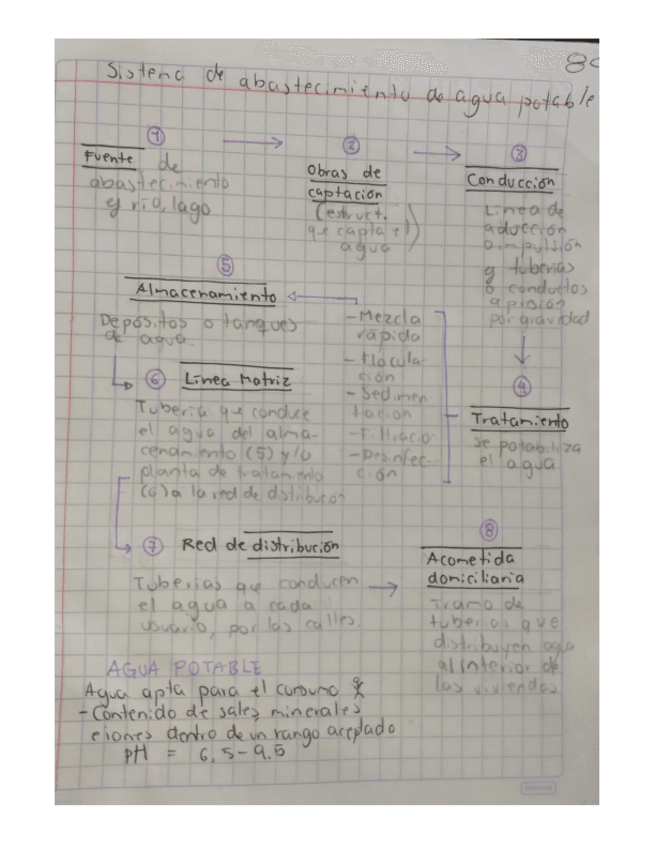 Sistema de abastecimiento de agua potable
1
Fuente de
abastecimiento
ej río, lago
2
Obras de
captación
(estruct.
que capta el
agua)
3
Conducción
Línea de
aducción
o impulsión
ej tuberias
o conductos
a presión
por gravedad
4
Tratamiento
se potabiliza
el agua
-Mezcla
rápida
-flocula-
ción
-Sedimen
tación
-Filtración
-Desinfec-
ción
5
Almacenamiento
Depósitos o tanques
de agua.
6 Línea Matriz
Tubería que conduce
el agua del alma-
cenamiento (5) y/o
planta de tratamiento
a la red de distribución
7 Red de distribución
Tuberias que conducen
el agua a cada
usuario, por las calles.
8
Acometida
domiciliaria
Tramo de
tuberias que
distribuyen agua
al interior de
las viviendas
AGUA POTABLE
Agua apta para el consumo
-Contenido de sales, minerales
e iones dentro de un rango aceptado
pH = 6,5-9.5